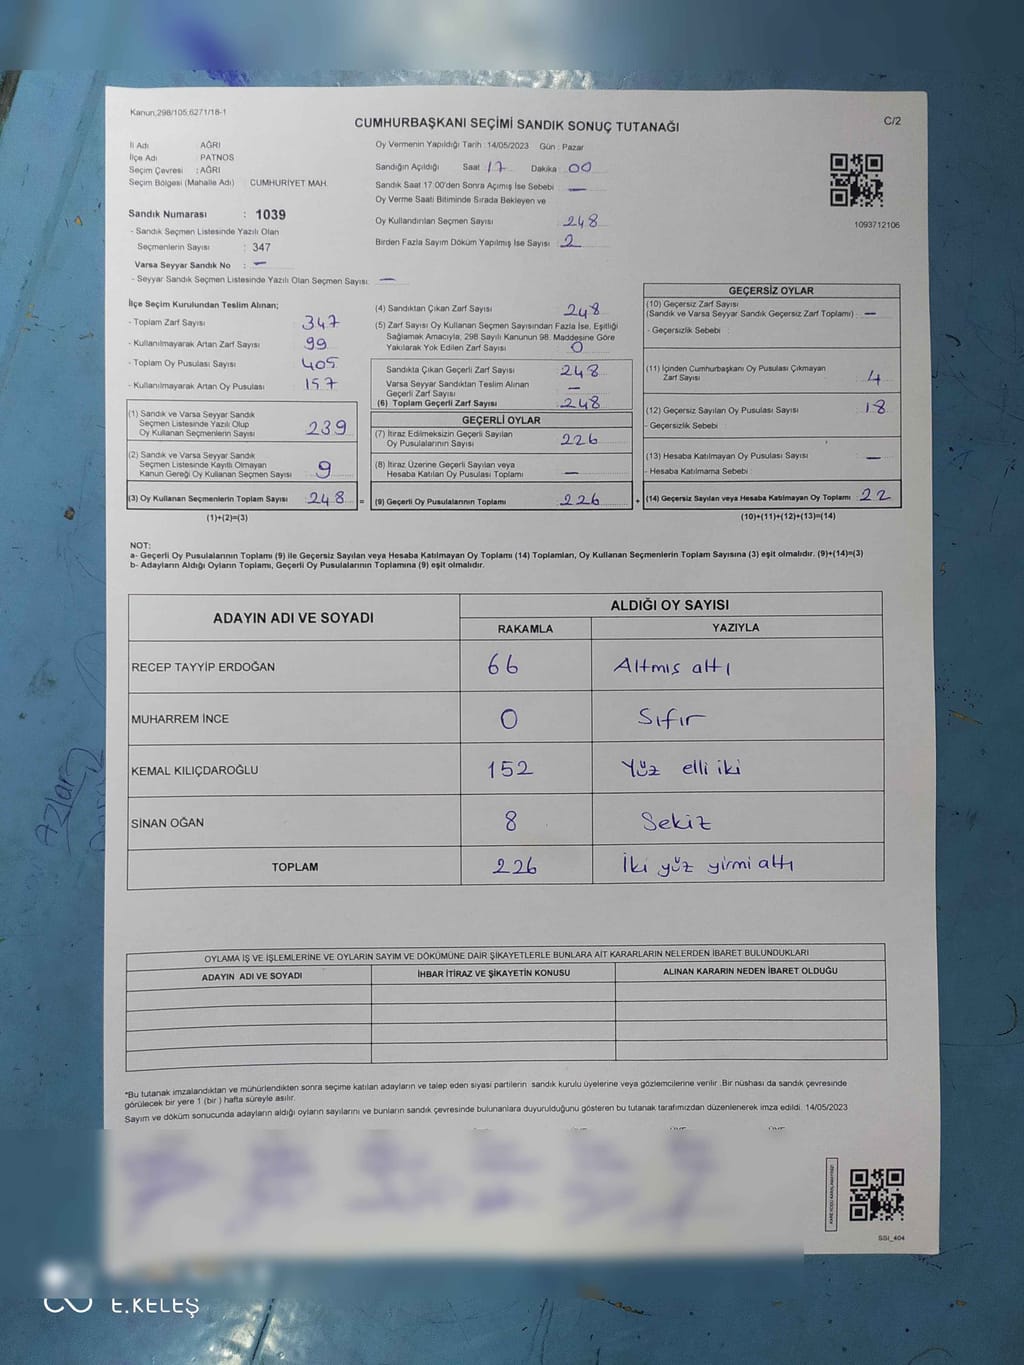 Kanun;298/105;6271/18-1
CUMHURBAŞKANI SEÇİMİ SANDIK SONUÇ TUTANAĞI
C/2
İl Adı AĞRI
İlçe Adı : PATNOS
Seçim Çevresi : AĞRI
Seçim Bölgesi (Mahalle Adı) : CUMHURİYET MAH.
Sandık Numarası : 1039
- Sandık Seçmen Listesinde Yazılı Olan
Seçmenlerin Sayısı : 347
Varsa Seyyar Sandık No : —
- Seyyar Sandık Seçmen Listesinde Yazılı Olan Seçmen Sayısı: —
Oy Vermenin Yapıldığı Tarih : 14/05/2023 Gün : Pazar
Sandığın Açıldığı Saat : 17 Dakika : 00
Sandık Saat 17.00'den Sonra Açımış İse Sebebi : —
Oy Verme Saati Bitiminde Sırada Bekleyen ve
Oy Kullandırılan Seçmen Sayısı : 248
Birden Fazla Sayım Döküm Yapılmış İse Sayısı : 2
1093712106
İlçe Seçim Kurulundan Teslim Alınan;
- Toplam Zarf Sayısı : 347
- Kullanılmayarak Artan Zarf Sayısı : 99
- Toplam Oy Pusulası Sayısı : 405
- Kullanılmayarak Artan Oy Pusulası : 157
(1) Sandık ve Varsa Seyyar Sandık
Seçmen Listesinde Yazılı Olup
Oy Kullanan Seçmenlerin Sayısı : 239
(2) Sandık ve Varsa Seyyar Sandık
Seçmen Listesinde Kayıtlı Olmayan
Kanun Gereği Oy Kullanan Seçmen Sayısı : 9
(3) Oy Kullanan Seçmenlerin Toplam Sayısı : 248 =
(1)+(2)=(3)
(4) Sandıktan Çıkan Zarf Sayısı : 248
(5) Zarf Sayısı Oy Kullanan Seçmen Sayısından Fazla İse, Eşitliği
Sağlamak Amacıyla; 298 Sayılı Kanunun 98. Maddesine Göre
Yakılarak Yok Edilen Zarf Sayısı : 0
Sandıkta Çıkan Geçerli Zarf Sayısı : 248
Varsa Seyyar Sandıktan Teslim Alınan
Geçerli Zarf Sayısı : —
(6) Toplam Geçerli Zarf Sayısı : 248
GEÇERLİ OYLAR
(7) İtiraz Edilmeksizin Geçerli Sayılan
Oy Pusulalarının Sayısı : 226
(8) İtiraz Üzerine Geçerli Sayılan veya
Hesaba Katılan Oy Pusulası Toplamı : —
(9) Geçerli Oy Pusulalarının Toplamı : 226 +
GEÇERSİZ OYLAR
(10) Geçersiz Zarf Sayısı
(Sandık ve Varsa Seyyar Sandık Geçersiz Zarf Toplamı) : —
- Geçersizlik Sebebi :
(11) İçinden Cumhurbaşkanı Oy Pusulası Çıkmayan
Zarf Sayısı : 4
(12) Geçersiz Sayılan Oy Pusulası Sayısı : 18
- Geçersizlik Sebebi :
(13) Hesaba Katılmayan Oy Pusulası Sayısı : —
- Hesaba Katılmama Sebebi :
(14) Geçersiz Sayılan veya Hesaba Katılmayan Oy Toplamı : 22
(10)+(11)+(12)+(13)=(14)
NOT:
a- Geçerli Oy Pusulalarının Toplamı (9) ile Geçersiz Sayılan veya Hesaba Katılmayan Oy Toplamı (14) Toplamları, Oy Kullanan Seçmenlerin Toplam Sayısına (3) eşit olmalıdır. (9)+(14)=(3)
b- Adayların Aldığı Oyların Toplamı, Geçerli Oy Pusulalarının Toplamına (9) eşit olmalıdır.
ADAYIN ADI VE SOYADI ALDIĞI OY SAYISI
RAKAMLA YAZIYLA
RECEP TAYYİP ERDOĞAN 66 Altmış altı
MUHARREM İNCE 0 Sıfır
KEMAL KILIÇDAROĞLU 152 Yüz elli iki
SİNAN OĞAN 8 Sekiz
TOPLAM 226 İki yüz yirmi altı
OYLAMA İŞ VE İŞLEMLERİNE VE OYLARIN SAYIM VE DÖKÜMÜNE DAİR ŞİKAYETLERLE BUNLARA AİT KARARLARIN NELERDEN İBARET BULUNDUKLARI
ADAYIN ADI VE SOYADI İHBAR İTİRAZ VE ŞİKAYETİN KONUSU ALINAN KARARIN NEDEN İBARET OLDUĞU
*Bu tutanak imzalandıktan ve mühürlendikten sonra seçime katılan adayların ve talep eden siyasi partilerin sandık kurulu üyelerine veya gözlemcilerine verilir .Bir nüshası da sandık çevresinde
görülecek bir yere 1 (bir ) hafta süreyle asılır.
Sayım ve döküm sonucunda adayların aldığı oyların sayılarını ve bunların sandık çevresinde bulunanlara duyurulduğunu gösteren bu tutanak tarafımızdan düzenlenerek imza edildi. 14/05/2023
SSI_404
E.KELEŞ